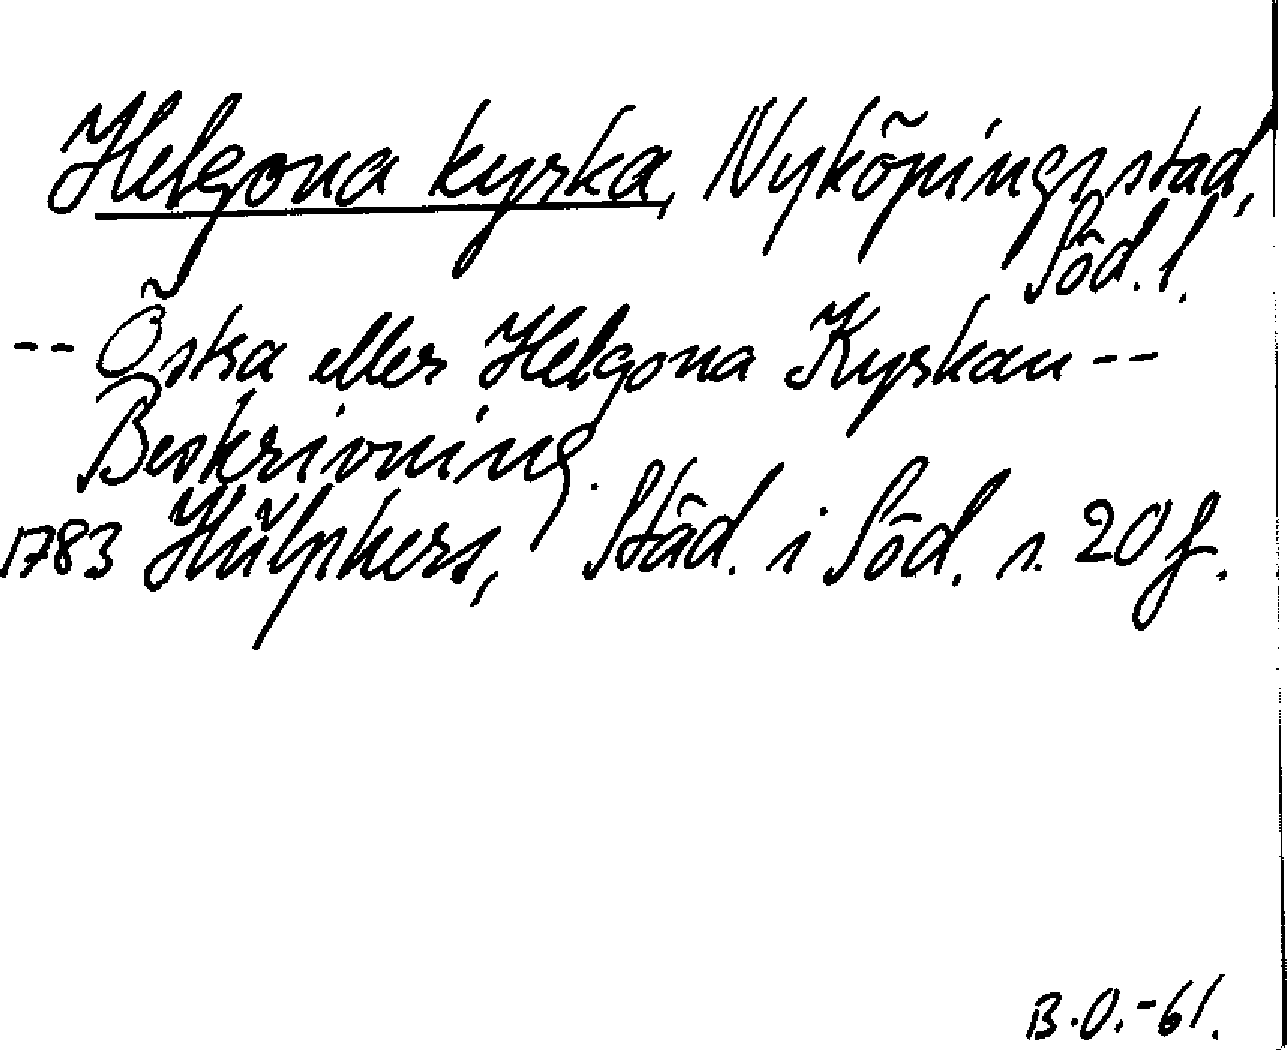 Helgona kyrka, Nyköpings stad,
Söd. l.
-- Östra eller Helgona Kyrkan --
Beskrivning.
1783 Hülphers, Städ. i Söd. s. 20 f.
B.O.-61.